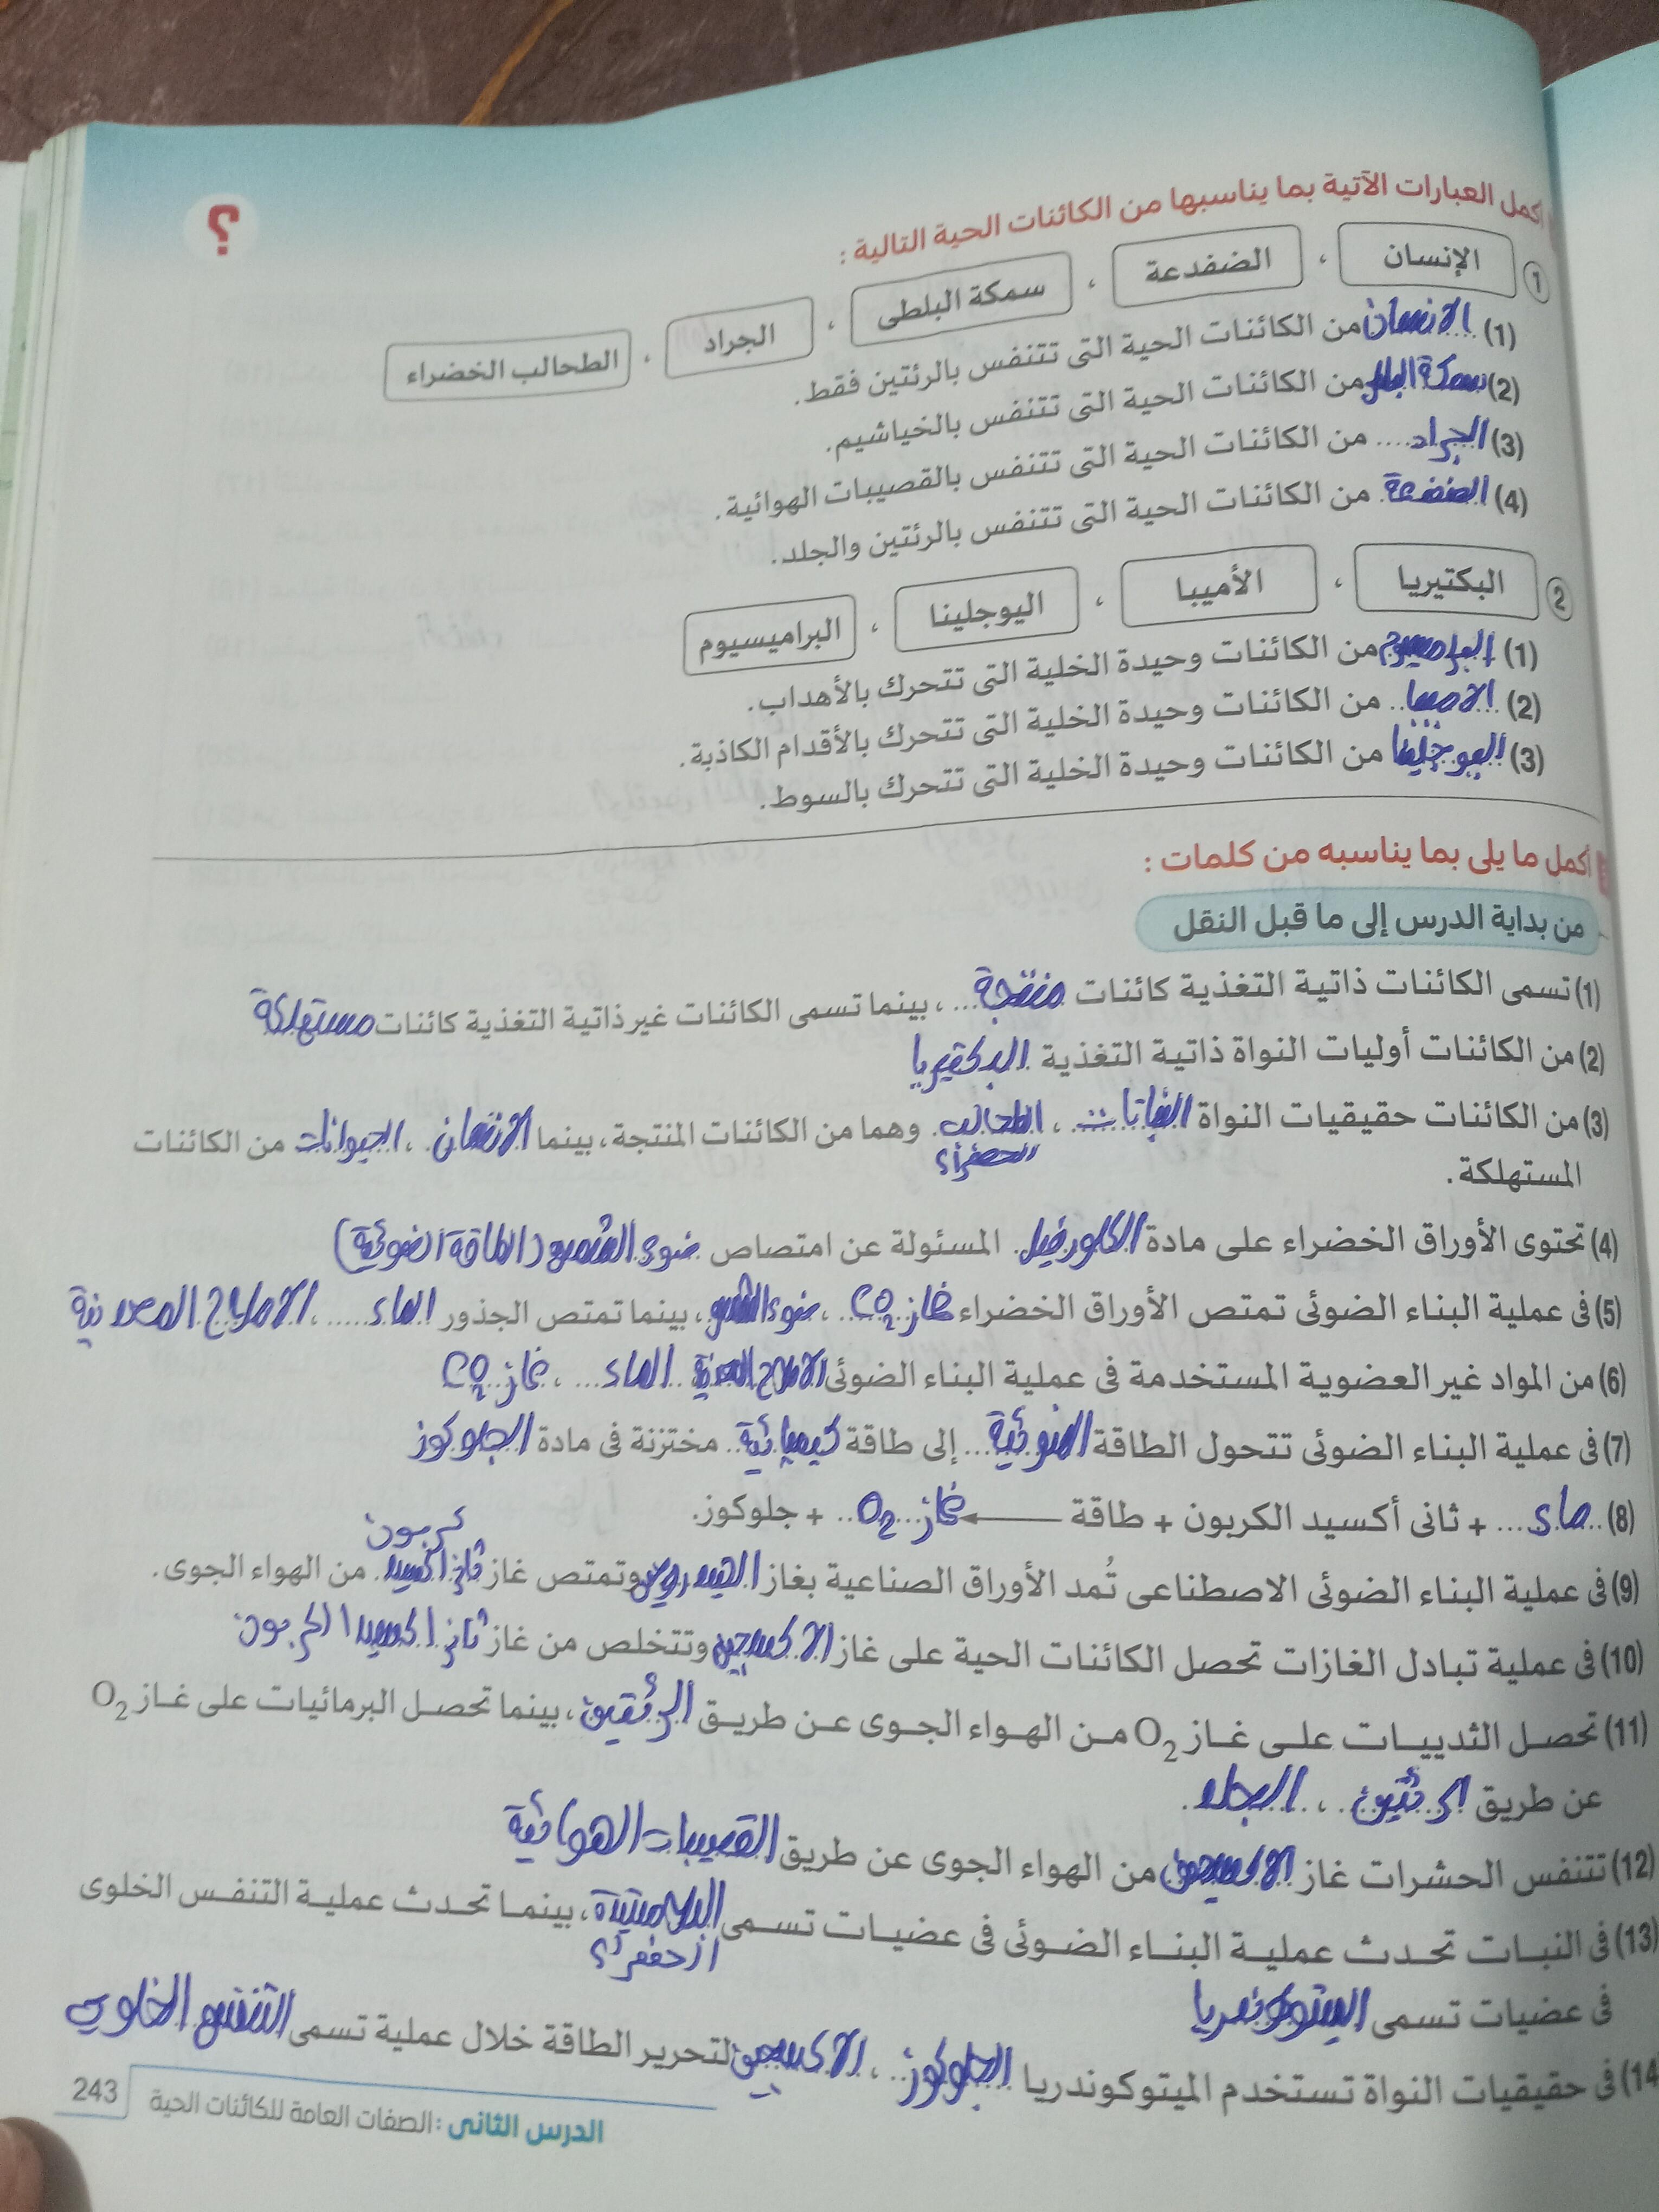 أكمل العبارات الآتية بما يناسبها من الكائنات الحية التالية :
؟
① الإنسان ، الضفدعة ، سمكة البلطى ، الجراد ، الطحالب الخضراء
(1) الانسان من الكائنات الحية التى تتنفس بالرئتين فقط.
(2) سمكة البلطى من الكائنات الحية التى تتنفس بالخياشيم.
(3) الجراد.... من الكائنات الحية التى تتنفس بالقصيبات الهوائية.
(4) الضفدعة. من الكائنات الحية التى تتنفس بالرئتين والجلد.
② البكتيريا ، الأميبا ، اليوجلينا ، البراميسيوم
(1) البراميسيوم من الكائنات وحيدة الخلية التى تتحرك بالأهداب.
(2) الاميبا.. من الكائنات وحيدة الخلية التى تتحرك بالأقدام الكاذبة.
(3) اليوجلينا من الكائنات وحيدة الخلية التى تتحرك بالسوط.
أكمل ما يلى بما يناسبه من كلمات :
من بداية الدرس إلى ما قبل النقل
(1) تسمى الكائنات ذاتية التغذية كائنات منتجة...، بينما تسمى الكائنات غير ذاتية التغذية كائنات مستهلكة
(2) من الكائنات أوليات النواة ذاتية التغذية البكتيريا
(3) من الكائنات حقيقيات النواة النباتات ، الطحالب. وهما من الكائنات المنتجة، بينما الانسان ، الحيوانات من الكائنات
الخضراء
المستهلكة.
(4) تحتوى الأوراق الخضراء على مادة الكلوروفيل. المسئولة عن امتصاص ضوء الشمس (الطاقة الضوئية)
(5) فى عملية البناء الضوئى تمتص الأوراق الخضراء غاز CO2 ، ضوء الشمس، بينما تمتص الجذور الماء.....، الاملاح المعدنية
(6) من المواد غير العضوية المستخدمة فى عملية البناء الضوئى الاملاح المعدنية ، الماء... ، غاز CO2
(7) فى عملية البناء الضوئى تتحول الطاقة الضوئية... إلى طاقة كيميائية.. مختزنة فى مادة الجلوكوز
(8) ..ماء... + ثانى أكسيد الكربون + طاقة ← غاز O2... + جلوكوز.
كربون
(9) فى عملية البناء الضوئى الاصطناعى تُمد الأوراق الصناعية بغاز الهيدروجين وتمتص غاز ثانى اكسيد. من الهواء الجوى.
(10) فى عملية تبادل الغازات تحصل الكائنات الحية على غاز الاكسجين وتتخلص من غاز ثانى اكسيد الكربون
(11) تحصل الثدييات على غاز O2 من الهواء الجوى عن طريق الرئتين، بينما تحصل البرمائيات على غاز O2
عن طريق الرئتين.. ، الجلد.
(12) تتنفس الحشرات غاز الاكسجين من الهواء الجوى عن طريق القصيبات الهوائية
(13) فى النبات تحدث عملية البناء الضوئى فى عضيات تسمى البلاستيدة، بينما تحدث عملية التنفس الخلوى
فى عضيات تسمى الميتوكوندريا
(14) فى حقيقيات النواة تستخدم الميتوكوندريا الجلوكوز.. ، الاكسجين لتحرير الطاقة خلال عملية تسمى التنفس الخلوى
الدرس الثانى : الصفات العامة للكائنات الحية
243